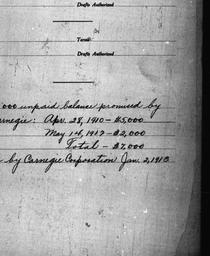 Drafts Authorized
Total
Drafts Authorized
000 unpaid balance promised by
arnegie: Apr. 28, 1910 - £5,000
May 14, 1917 - £2,000
Total - £7,000
by Carnegie Corporation Jan. 2, 1918